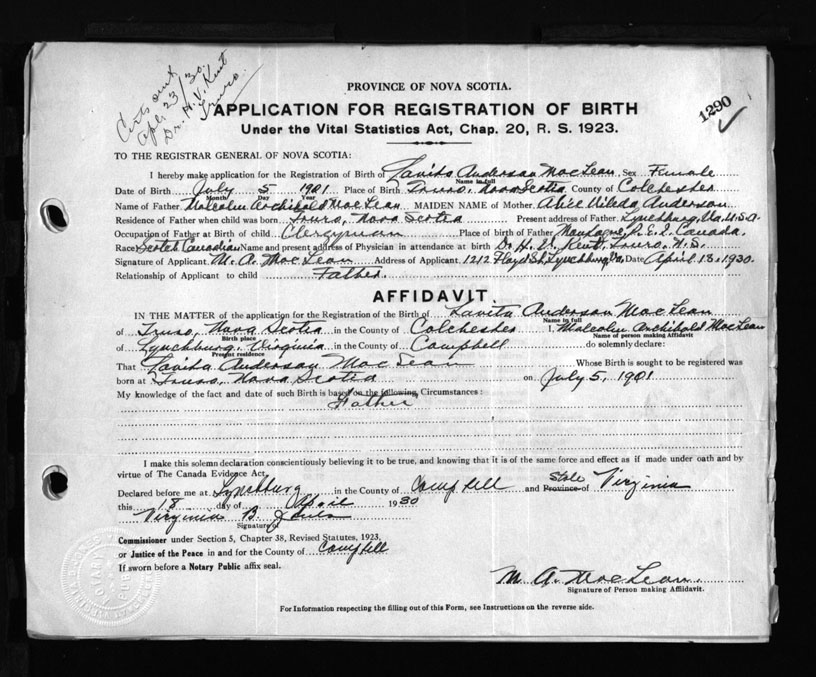 Certs sent
Apl. 23/30.
Dr. H. V. Kent
Truro.
1290
PROVINCE OF NOVA SCOTIA.
APPLICATION FOR REGISTRATION OF BIRTH
Under the Vital Statistics Act, Chap. 20, R. S. 1923.
TO THE REGISTRAR GENERAL OF NOVA SCOTIA:
I hereby make application for the Registration of Birth of Lavita Anderson MacLean Sex Female
Name in full
Date of Birth July 5 1901 Place of Birth Truro, Nova Scotia County of Colchester
Month Day Year
Name of Father Malcolm Archibald MacLean MAIDEN NAME of Mother Alice Anderson
Residence of Father when child was born Truro, Nova Scotia Present address of Father Lynchburg, Va. U.S.A.
Occupation of Father at Birth of child Clergyman Place of birth of Father P.E.I. Canada.
Race Scotch Canadian Name and present address of Physician in attendance at birth Dr. H. V. Kent, Truro, N.S.
Signature of Applicant M. A. MacLean Address of Applicant 1212 Floyd St, Lynchburg Va, Date April 18, 1930.
Relationship of Applicant to child Father.
AFFIDAVIT.
IN THE MATTER of the application for the Registration of the Birth of Lavita Anderson MacLean
Name in full
of Truro, Nova Scotia in the County of Colchester I, Malcolm Archibald MacLean
Birth place Name of person making Affidavit
of Lynchburg, Virginia in the County of Campbell do solemnly declare:
Present residence
That Lavita Anderson MacLean Whose Birth is sought to be registered was
born at Truro, Nova Scotia on July 5, 1901
My knowledge of the fact and date of such Birth is based on the following Circumstances:
Father
I make this solemn declaration conscientiously believing it to be true, and knowing that it is of the same force and effect as if made under oath and by
virtue of The Canada Evidence Act.
Declared before me at Lynchburg in the County of Campbell and Province of State Virginia
this 18 day of April 1930
Virginia B.
Signature of
Commissioner under Section 5, Chapter 38, Revised Statutes, 1923,
or Justice of the Peace in and for the County of Campbell
If sworn before a Notary Public affix seal.
M. A. MacLean
Signature of Person making Affidavit.
For Information respecting the filling out of this Form, see Instructions on the reverse side.